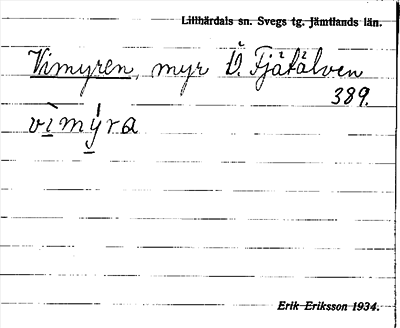 Lillhärdals sn. Svegs tg. Jämtlands län.
Vimyren, myr Ö. Fjätälven
389.
vìmýra
Erik Eriksson 1934.